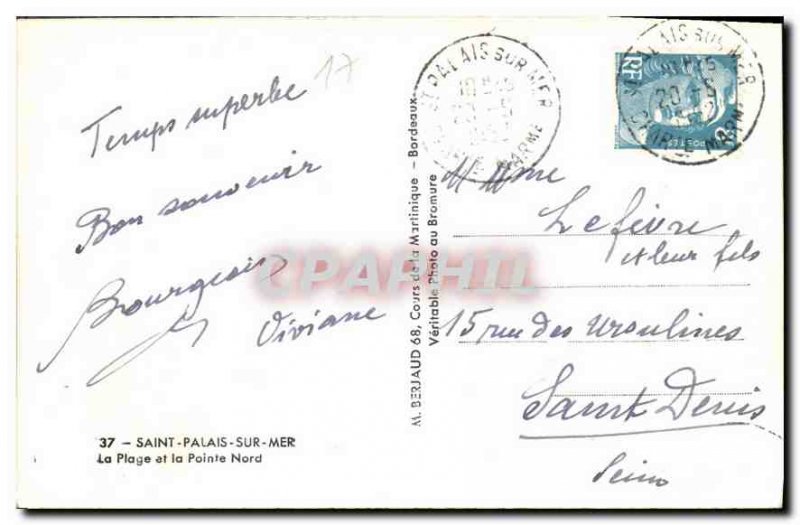 17
Temps superbe
Bon souvenir
Bourgeois
Viviane
37 – SAINT-PALAIS-SUR-MER
La Plage et la Pointe Nord
M. BERJAUD 68, Cours de la Martinique – Bordeaux
Véritable Photo au Bromure
CPAPHIL
ST PALAIS SUR MER
20 -5
RF
ST PALAIS SUR MER
20 -5
M Mme
Lefèvre
et leur fils
15 rue des Ursulines
Saint Denis
Seine